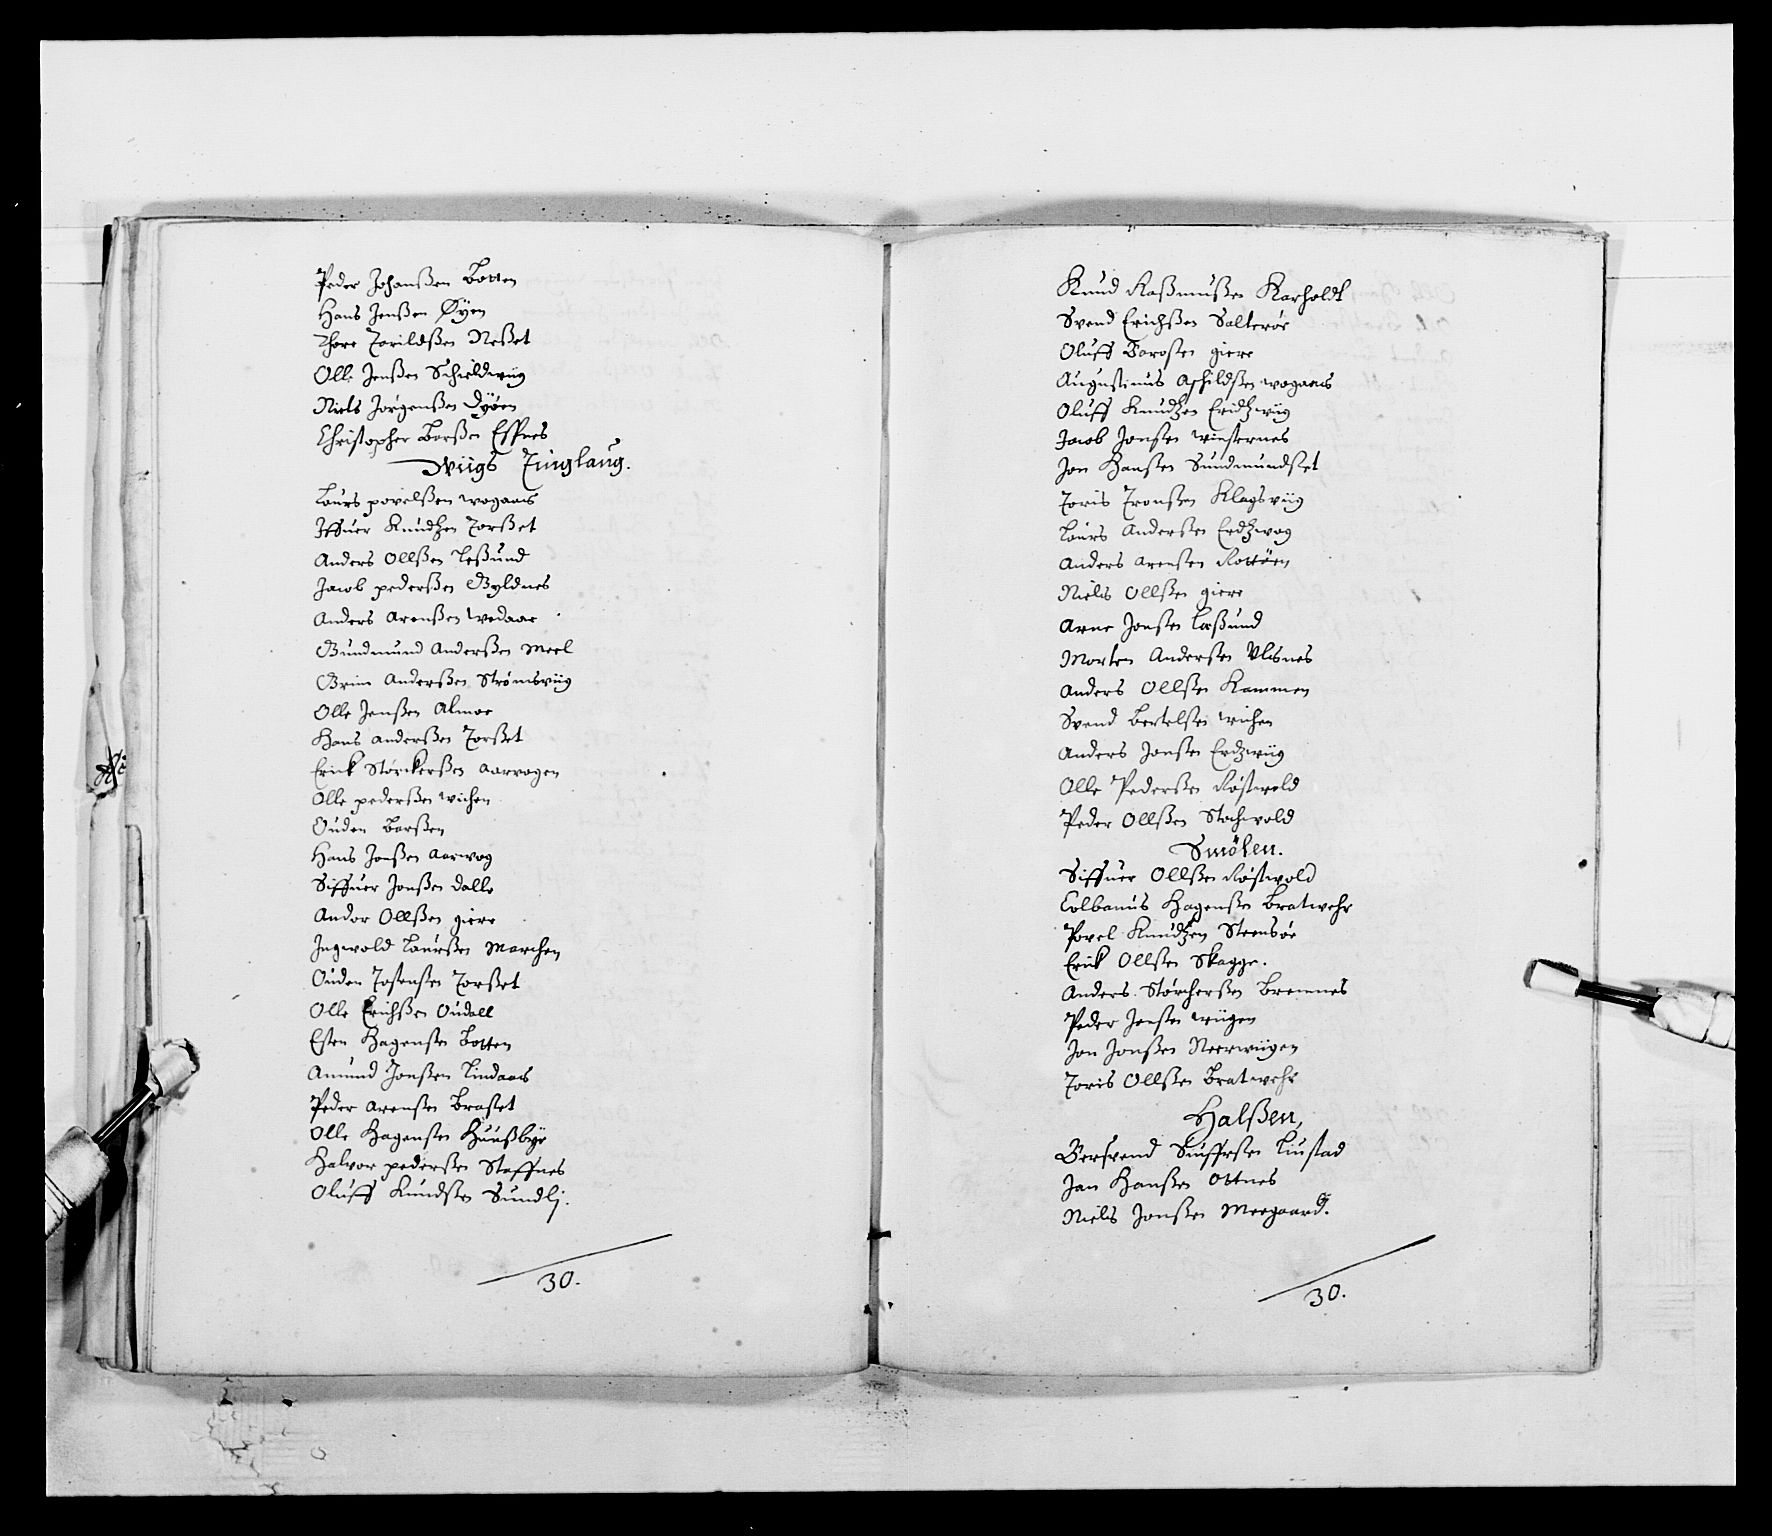 Peder Johanßen Botten
Hans Jenßen Øyen
Thore Torildßen Neßet
Olle Jenßen Schieldwiig
Niels Jørgenßen Dyøen
Christopher Larßen Effnes
Wiigs Tinglaug.
Laurs povelßen wogaas
Iffuer Knudtzen Torßet
Anders Ollßen Leßund
Jacob pederßen Gyldnes
Anders Arenßen wedaae
Gundmund Anderßen Meel
Grim Anderßen Strømsviig
Olle Jenßen Almoe
Hans anderßen Torßet
Erick Størckerßen aarvogen
Olle pederßen wichen
Ouden Larßen
Hans Jonßen Aarwog
Siffuer Jonßen Dalle
Andor Ollßen giere
Ingwold Laurßen Marchen
Ouden Tostensen Torßet
Olle Erichßen Oudall
Esten Hagensen Botten
Amund Jonßen Lindaas
Peder arensen Braset
Olle Hagensen Huußbye
Halvor pederßen Steffnes
Oluff Knudsen Sundlj.
30.
Knud Raßmußen Karholdt
Svend Erichßen Salterøe
Oluff Tarosen giere
Augustinus Ashildßen wogaas
Oluff Knudtzen Eridtzwiig
Jacob Jonsen winsternes
Jon Hansen Sundmundset
Joris Tronßen Klagsviig
Laurs Andersen Erdtzwog
Anders arensen Rottøen
Niels Ollsen giere
Arne Jonsen Læßund
Morten Andersen Ulsnes
Anders Ollsen Kammen
Svend Bertelsen wichen
Anders Jonsen Erdzwiig
Olle Pedersen Røstwold
Peder Ollßen Stochvold
Smølen.
Siffuer Ollßen Røstwold
Colbanus Hagensen Bratwehr
Povel Knudtzen Steensøe
Erick Ollsen Skagge.
Anders Størcherßen Bremnes
Peder Jensen wiigen
Jon Jonßen Neerwiigen
Joris Ollßen Bratwehr
Halßen,
Bersvend Siuffrsen Liustad
Jan Hanßen Ottnes
Niels Jonßen Meegaard.
30.